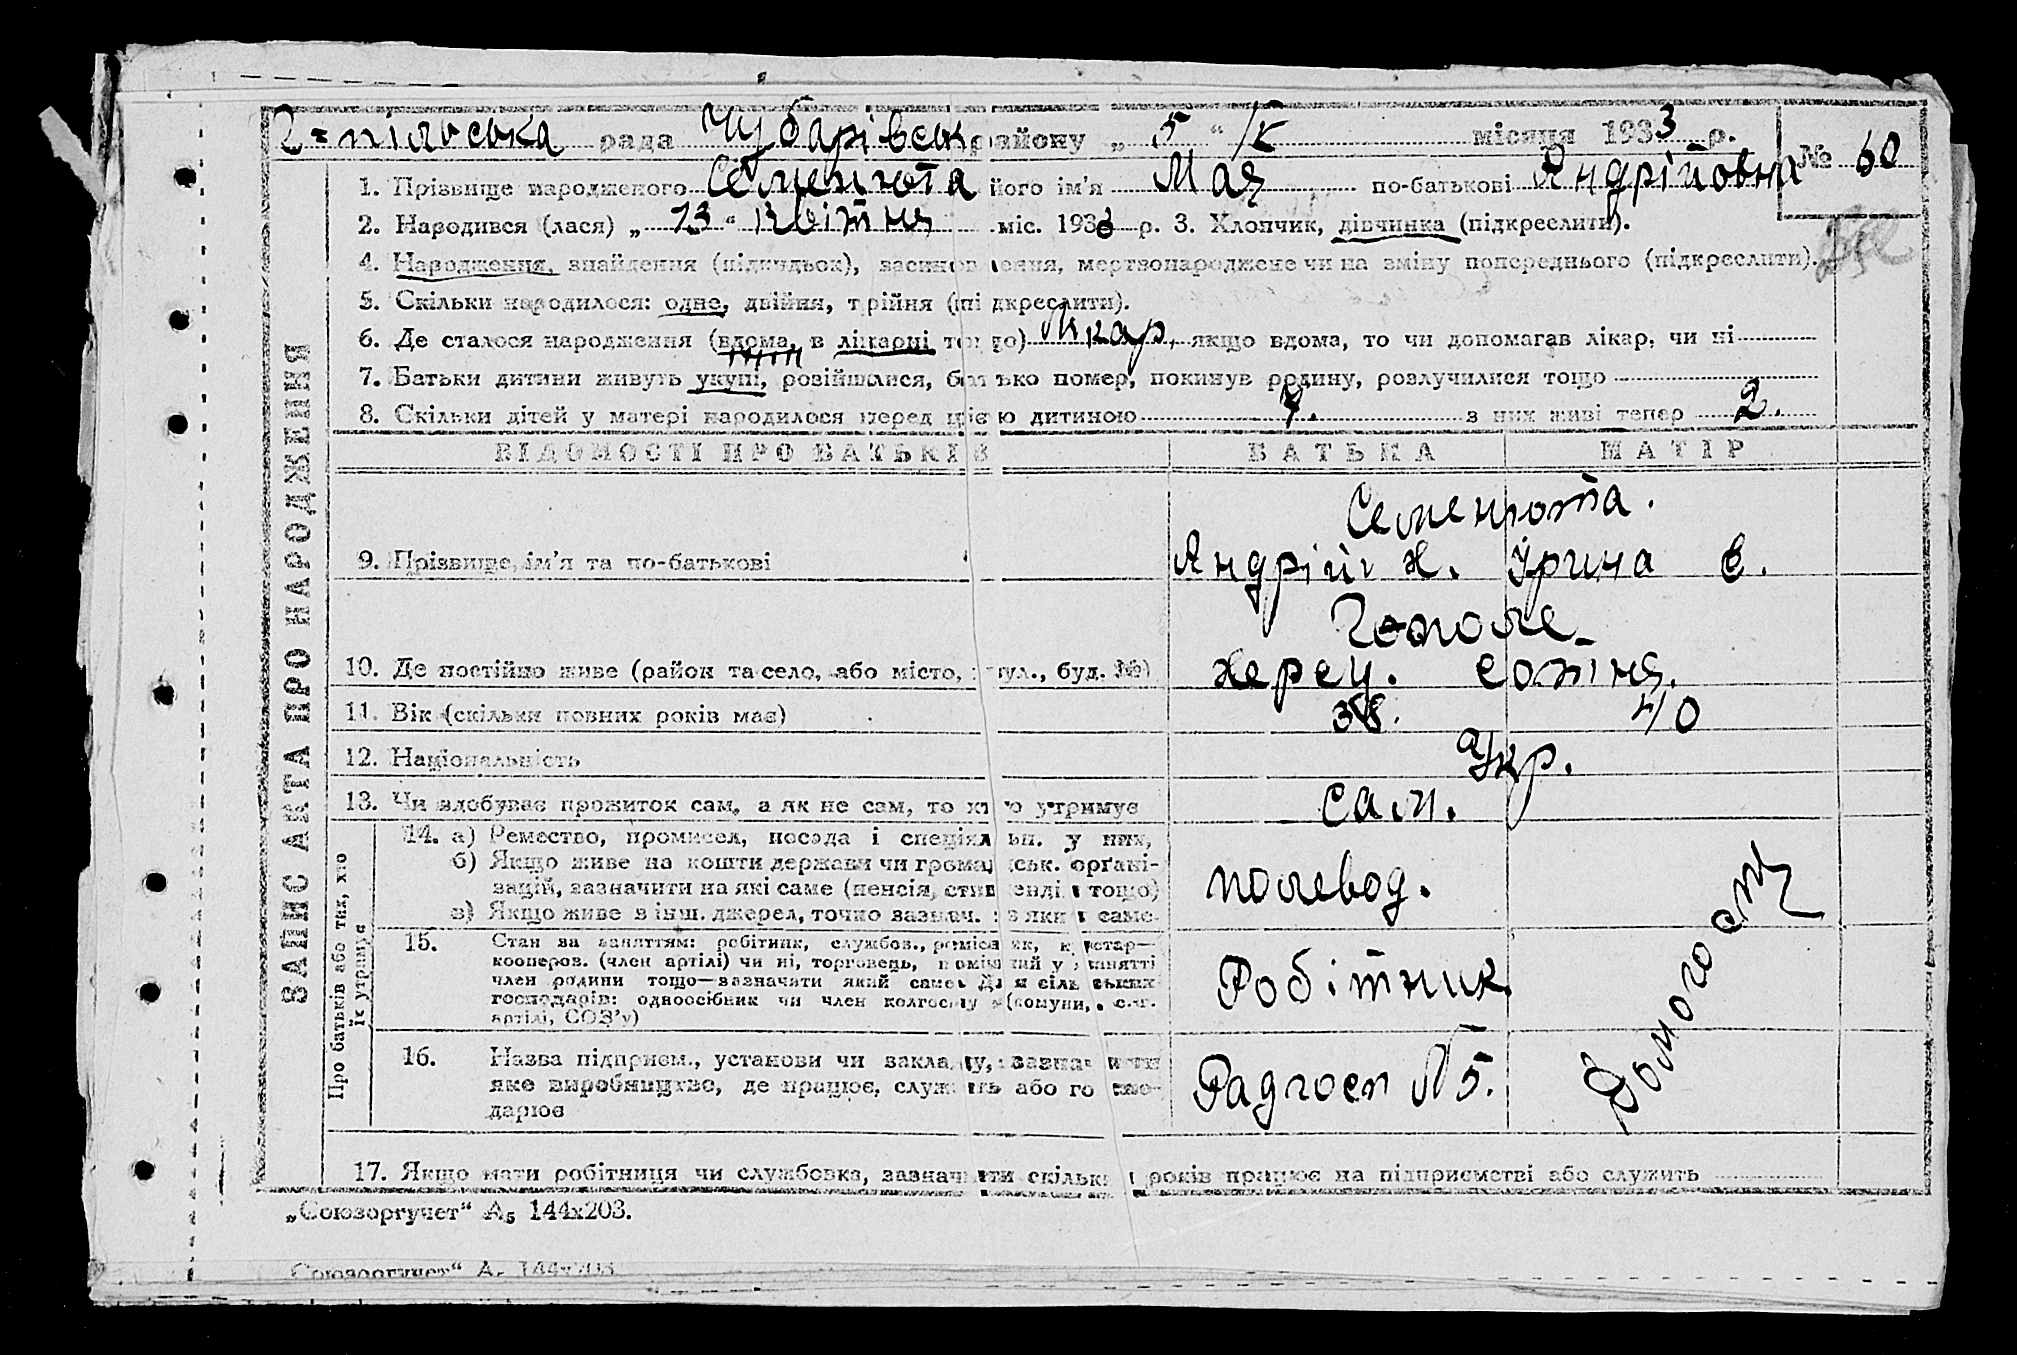 Г=пільська рада Чубарівськ району „ 5 “ /V місяця 1933 р.
№ 60
1. Прізвище народженого Семенюта його ім'я Мая по-батькові Андрійовна
2. Народився (лася) „ 13 “ квітня міс. 1933 р. 3. Хлопчик, дівчинка (підкреслити).
4. Народження, знайдення (підкидьок), засиновлення, мертвонароджене чи на зміну попереднього (підкреслити).
5. Скільки народилося: одне, двійня, трійня (підкреслити).
6. Де сталося народження (вдома, в лікарні тощо) Лікар, якщо вдома, то чи допомагав лікар, чи ні
7. Батьки дитини живуть укупі, розійшлися, батько помер, покинув родину, розлучилися тощо
8. Скільки дітей у матері народилося перед цією дитиною 7. з них живі тепер 2.
ЗАПИС АКТА ПРО НАРОДЖЕННЯ
ВІДОМОСТІ ПРО БАТЬКІВ БАТЬКА МАТІР
Семенюта.
9. Прізвище, ім'я та по-батькові Андрій Х. Ірина Є.
10. Де постійно живе (район та село, або місто, вул., буд. №) Херсц. сотня.
11. Вік (скільки повних років має) 38. 40
12. Національність Укр.
13. Чи здобуває прожиток сам, а як не сам, то хто утримує сам.
Про батьків або тих, хто їх утримує
14. а) Ремество, промисел, посада і спеціяльн. у них,
б) Якщо живе на кошти держави чи громадськ. орґані-
зацій, зазначити на які саме (пенсія, стипендія тощо)
в) Якщо живе з інш. джерел, точно зазнач. з яких саме
полевод.
15. Стан за заняттям: робітник, службов., ремісник, кустар—
кооперов. (член артілі) чи ні, торговець, помічний у занятті
член родини тощо—зазначати який саме. Для сільських
господарів: одноосібник чи член колгоспу (комуни, с.-г.
артілі, СОЗ'у)
Робітник
16. Назва підприєм., установи чи закладу, зазначити
яке виробництво, де працює, служить або госпо-
дарює
Радгосп №5.
Домогосп
17. Якщо мати робітниця чи службовка, зазначити скільки років працює на підприємстві або служить
„Союзоргучет“ А₅ 144х203.
Союзоргучет“ А₅ 144х203